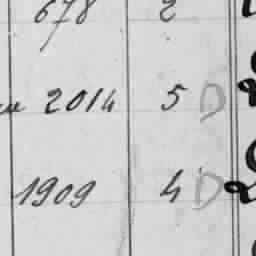 678 2
2014 5 D
1909 4 D